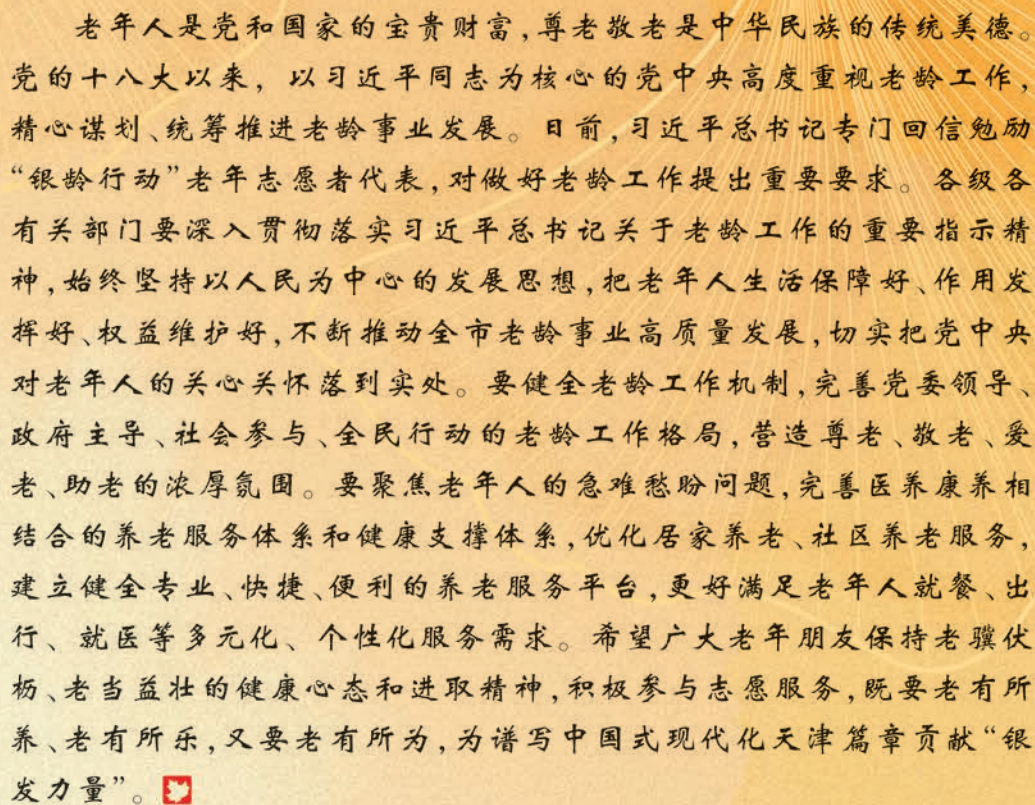 老年人是党和国家的宝贵财富,尊老敬老是中华民族的传统美德。
党的十八大以来，以习近平同志为核心的党中央高度重视老龄工作,
精心谋划、统筹推进老龄事业发展。日前,习近平总书记专门回信勉励
“银龄行动”老年志愿者代表,对做好老龄工作提出重要要求。各级各
有关部门要深入贯彻落实习近平总书记关于老龄工作的重要指示精
神,始终坚持以人民为中心的发展思想,把老年人生活保障好、作用发
挥好、权益维护好,不断推动全市老龄事业高质量发展,切实把党中央
对老年人的关心关怀落到实处。要健全老龄工作机制,完善党委领导、
政府主导、社会参与、全民行动的老龄工作格局,营造尊老、敬老、爱
老、助老的浓厚氛围。要聚焦老年人的急难愁盼问题,完善医养康养相
结合的养老服务体系和健康支撑体系,优化居家养老、社区养老服务,
建立健全专业、快捷、便利的养老服务平台,更好满足老年人就餐、出
行、就医等多元化、个性化服务需求。希望广大老年朋友保持老骥伏
枥、老当益壮的健康心态和进取精神,积极参与志愿服务,既要老有所
养、老有所乐,又要老有所为,为谱写中国式现代化天津篇章贡献“银
发力量”。